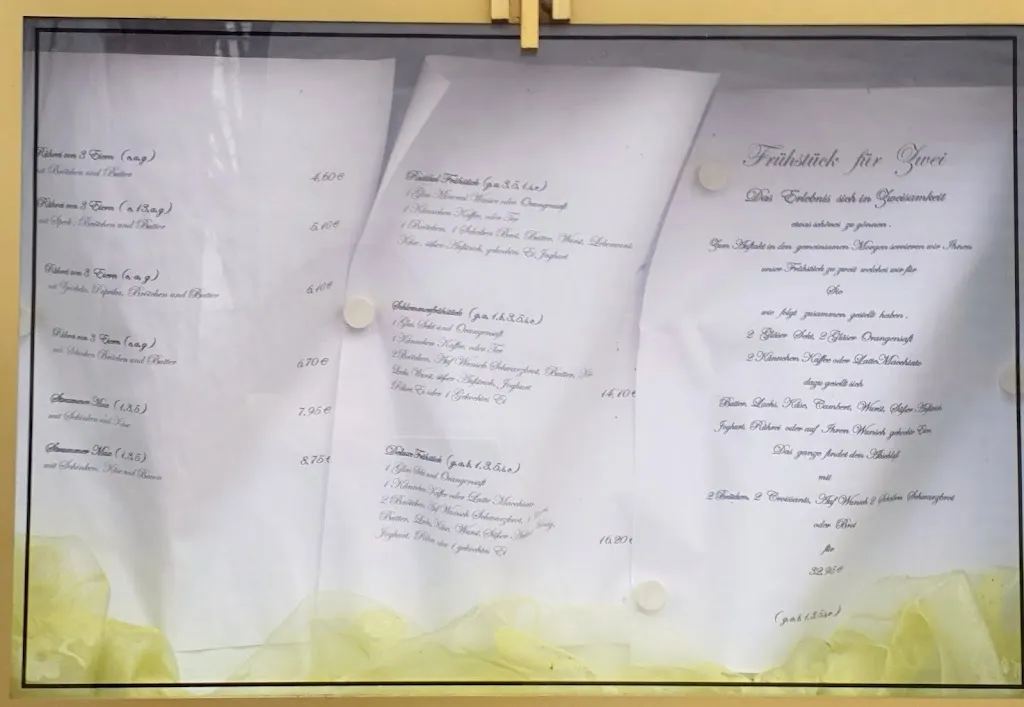 Rührei von 3 Eiern (a,g)
mit Brötchen und Butter
4,60 €
Rührei von 3 Eiern (a,13,a,g)
mit Speck, Brötchen und Butter
5,10 €
Rührei von 3 Eiern (a,g)
mit Zwiebeln, Paprika, Brötchen und Butter
6,10 €
Rührei von 3 Eiern (a,g)
mit Schinken Brötchen und Butter
6,70 €
Strammer Max (1,3,5)
mit Schinken und Käse
7,95 €
Strammer Max (1,3,5)
mit Schinken, Käse und
8,75 €
Frühstück
1 Glas Mineral Wasser oder Orangensaft
1 Kännchen Kaffee, oder Tee
1 Brötchen, 1 Scheiben Brot, Butter, Wurst,
Käse, süßer Aufstrich, gekochtes Ei, Joghurt
Schlemmerfrühstück
1 Glas Sekt und Orangensaft
1 Kännchen Kaffee, oder Tee
2 Brötchen, Auf Wunsch Schwarzbrot, Butter,
Lachs, Wurst, süßer Aufstrich, Joghurt
Rührei oder 1 Gekochtes Ei
14,10 €
1 Glas Sekt und Orangensaft
1 Kännchen Kaffee oder Latte Macchiato
2 Brötchen, Auf Wunsch Schwarzbrot, 1
Butter, Lachs, Käse, Wurst, Süßer
Joghurt, Rührei oder 1 gekochtes Ei
16,20 €
Frühstück für Zwei
Das Erlebnis sich in Zweisamkeit
etwas schönes zu gönnen.
Zum Auftakt in den gemeinsamen Morgen servieren wir Ihnen
unser Frühstück zu zweit welches wir für
Sie
wie folgt zusammen gestellt haben.
2 Gläser Sekt, 2 Gläser Orangensaft
2 Kännchen Kaffee oder Latte Macchiato
dazu gesellt sich
Butter, Lachs, Käse, Cambert, Wurst, Süßer Aufstrich
Joghurt, Rührei oder auf Ihren Wunsch gekochte Eier
Das ganze findet den Abschluß
mit
2 Brötchen, 2 Croissants, Auf Wunsch 2 Scheiben Schwarzbrot
oder Brot
für
32,95 €